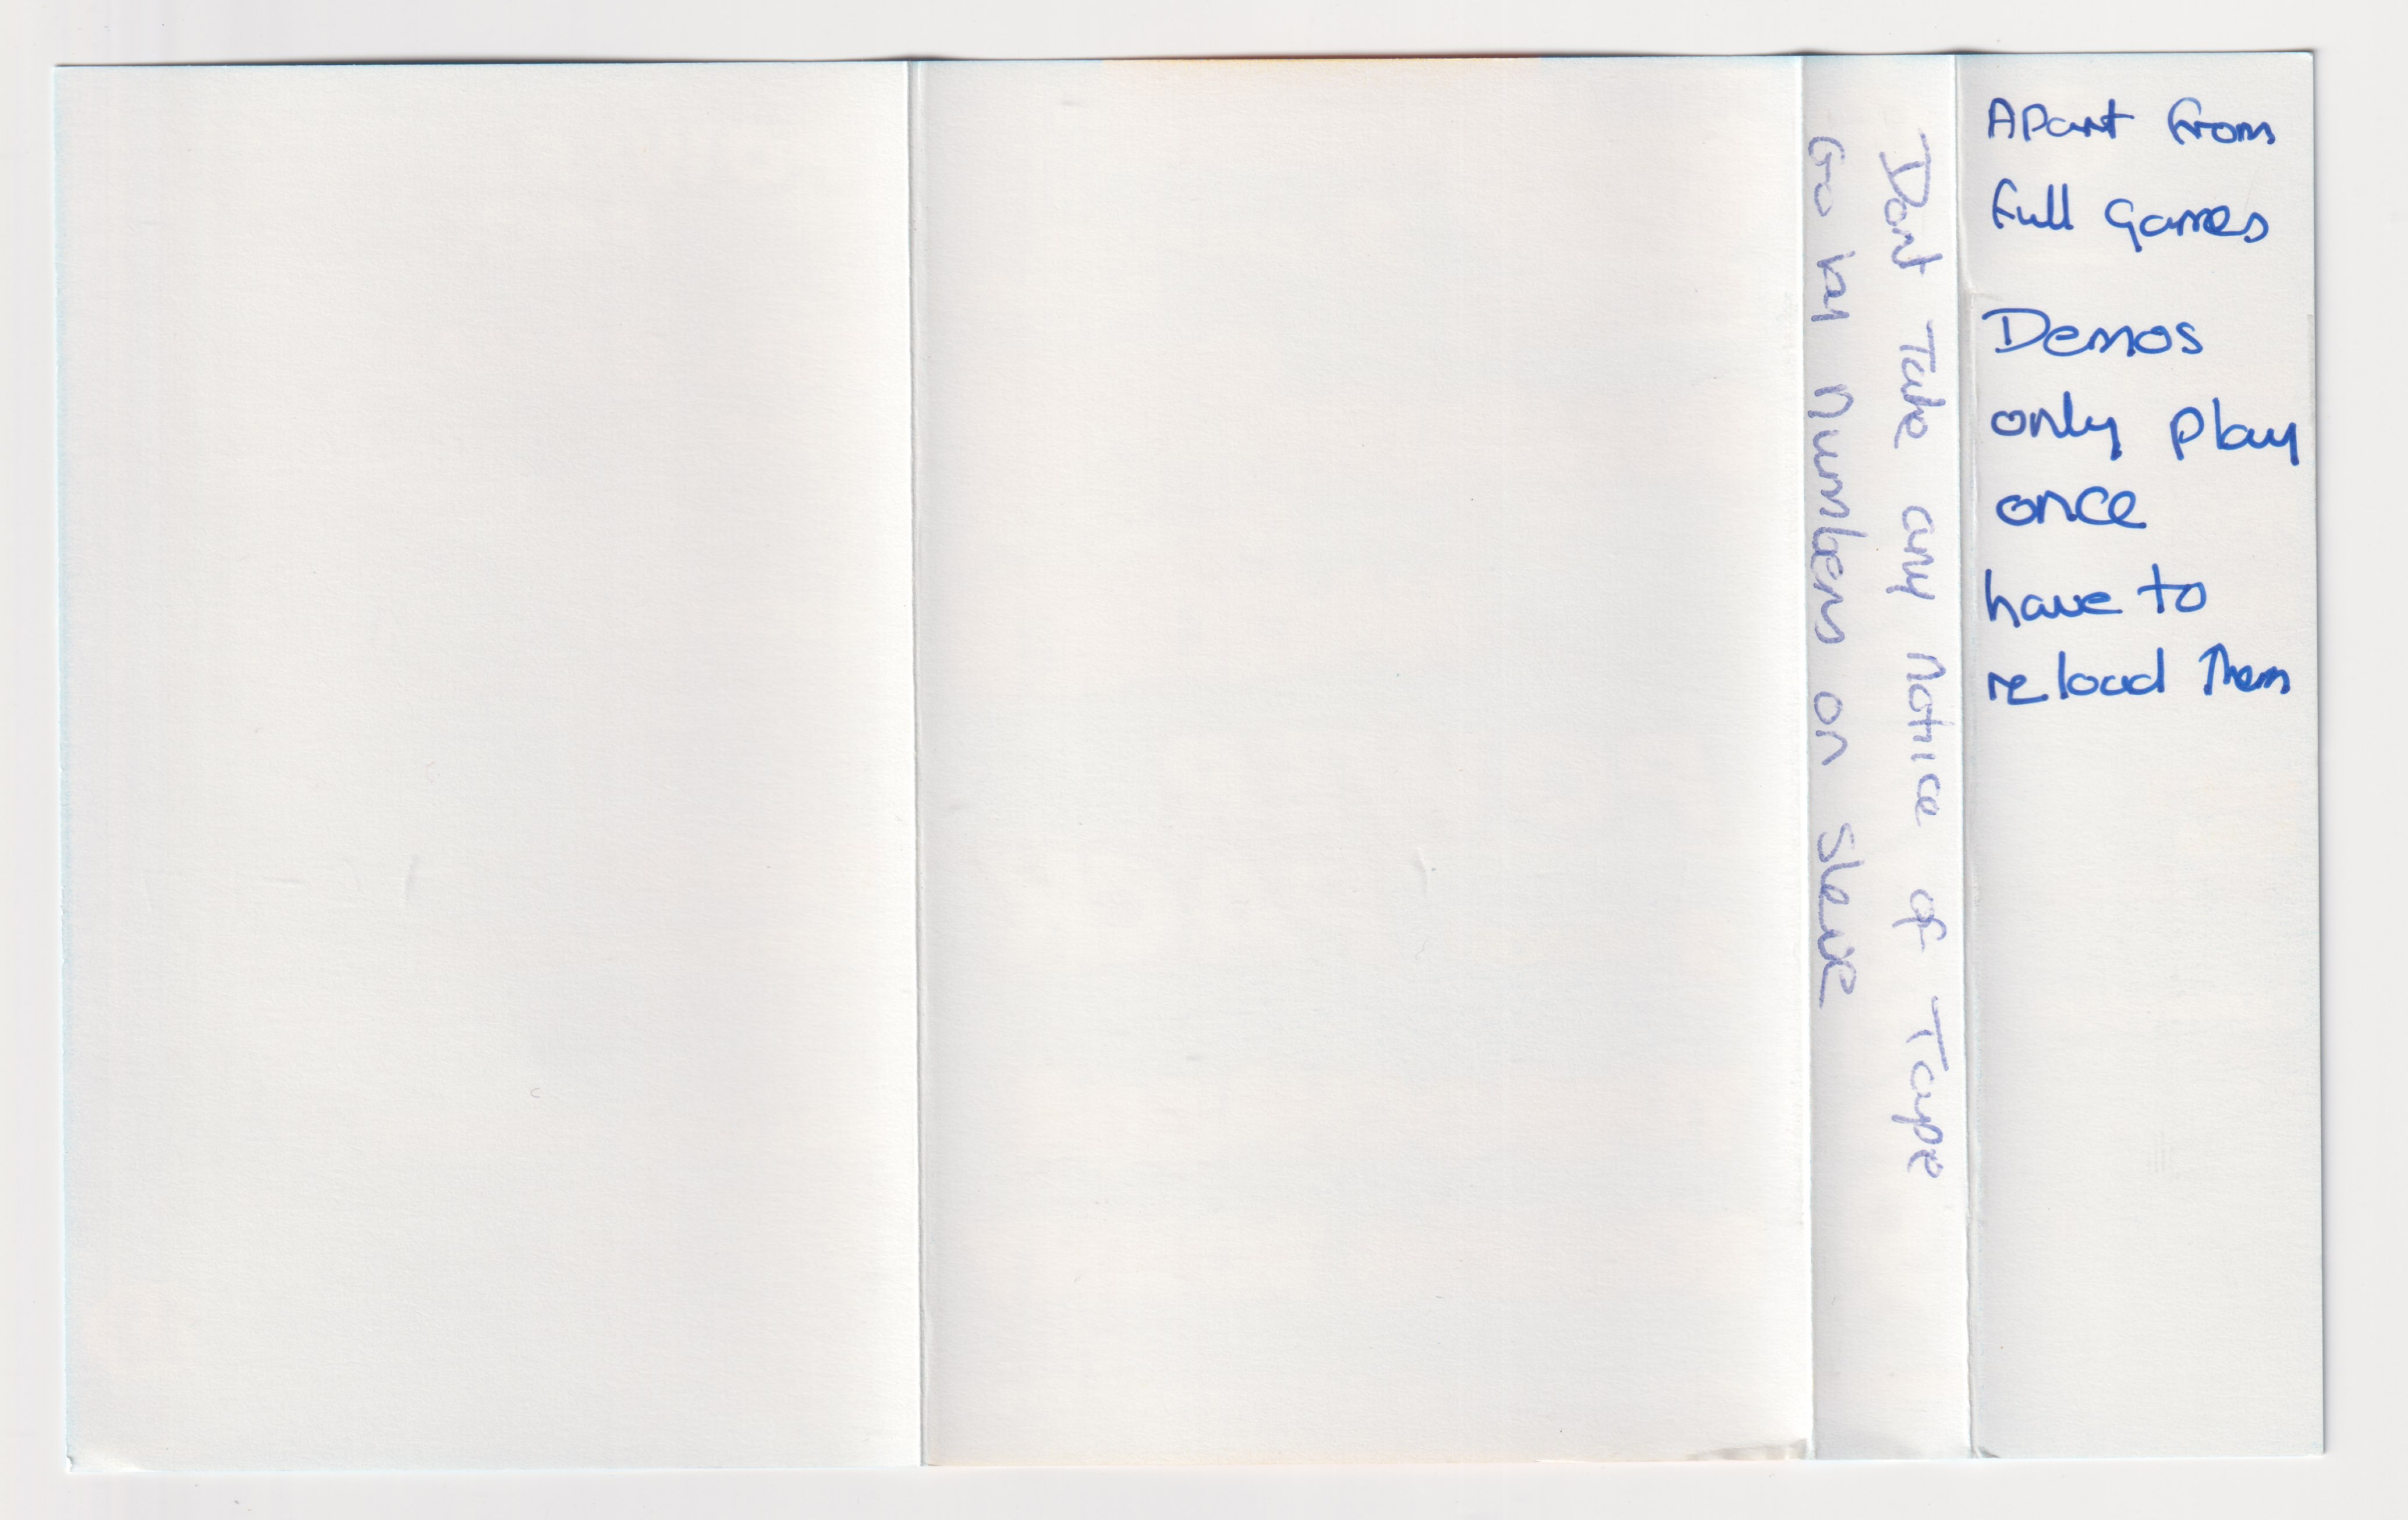 Dont Take any notice of Tape
Go by numbers on sleve
Apart from
full games
Demos
only play
once
have to
reload them